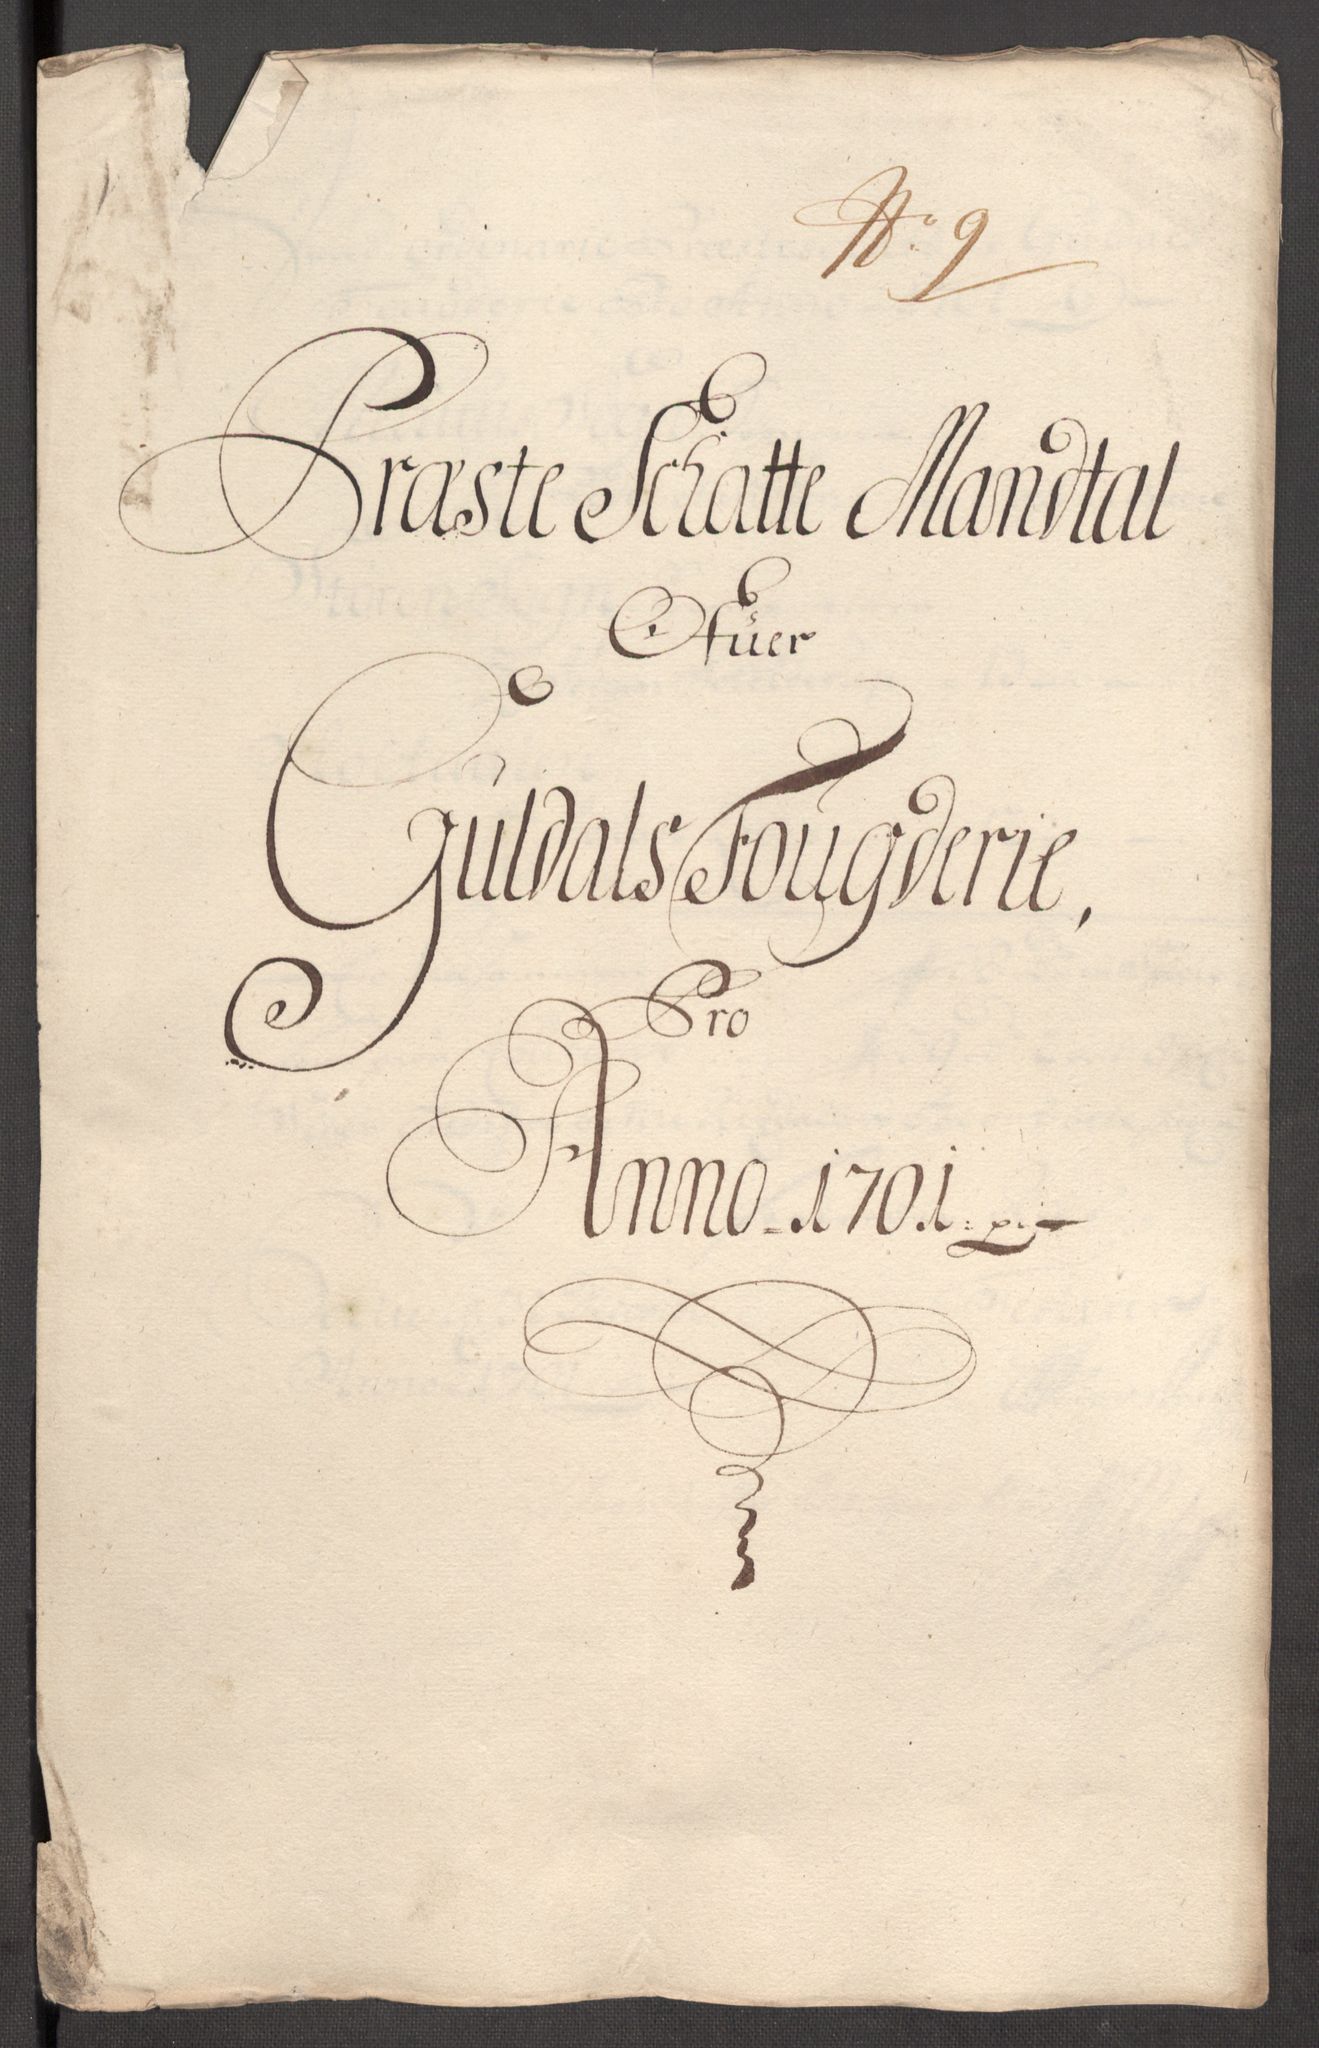 No. 9
Præste Schatte Mandtal
Ofuer
Guldals Fougderie,
Pro
Anno 1701